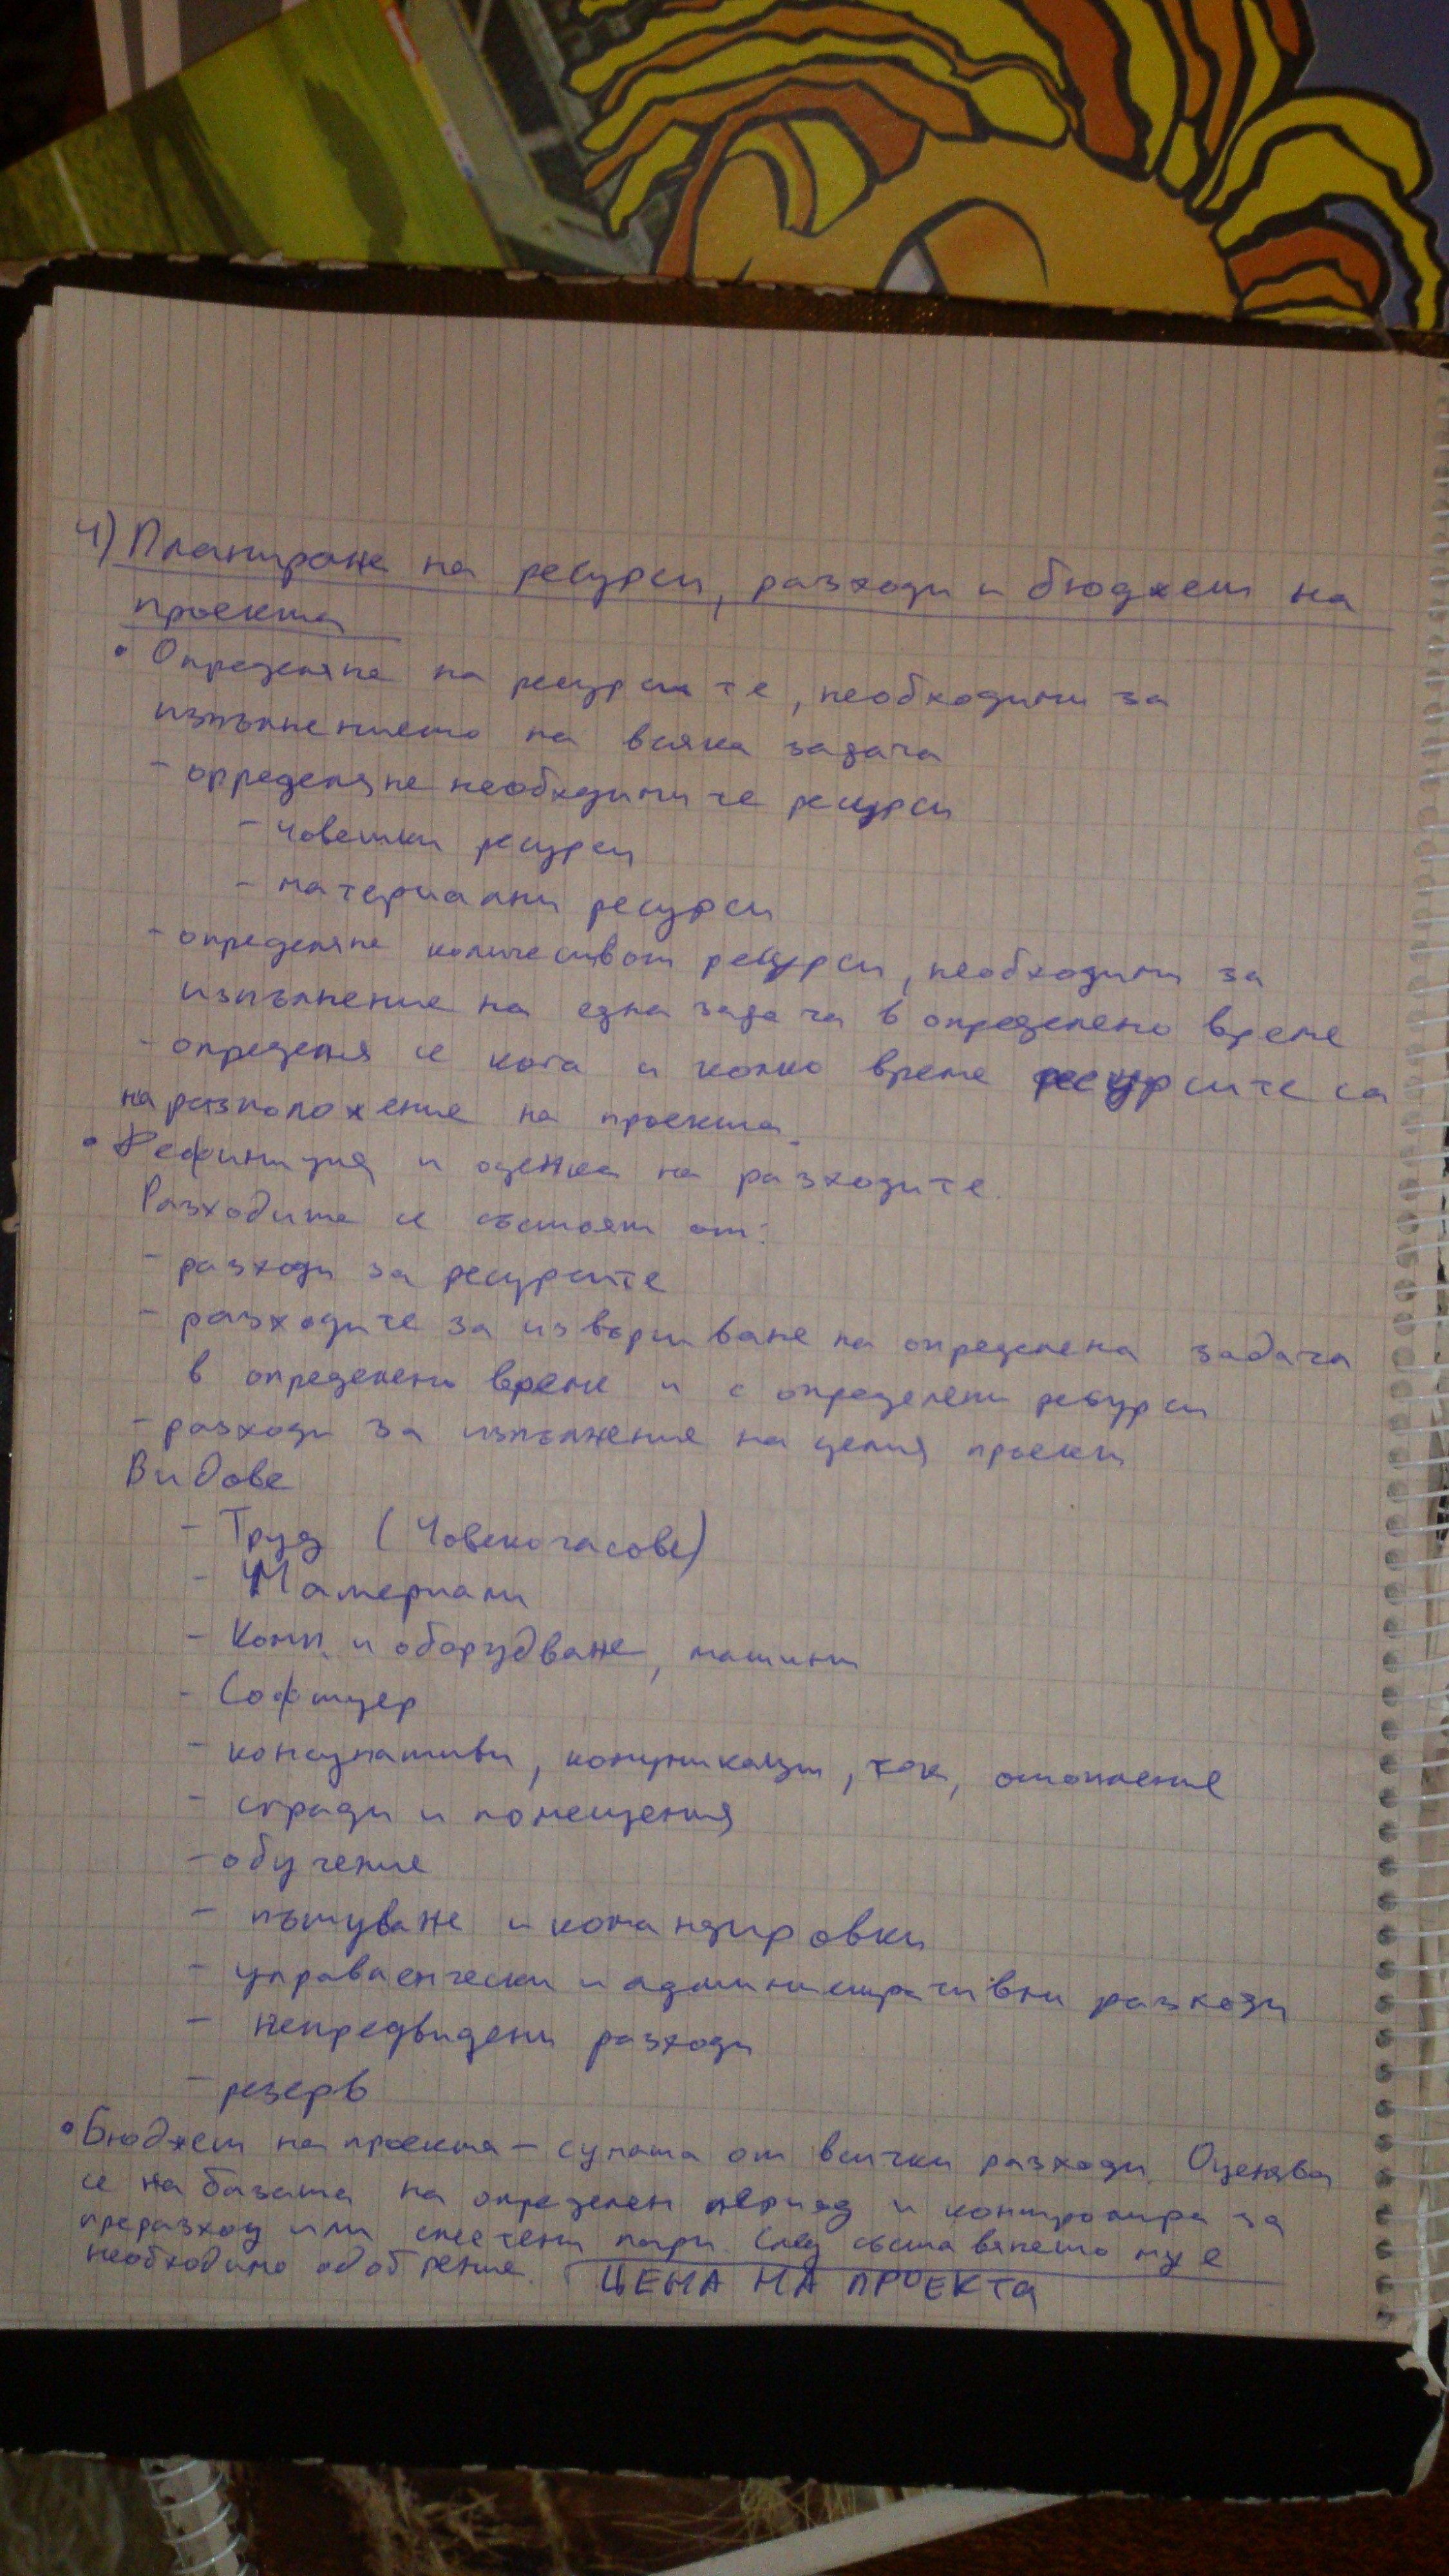 4) Планиране на ресурси, разходи и бюджет на
проекта
• Определяне на ресурсите, необходими за
изпълнението на всяка задача
- определяне необходимите ресурси
- човешки ресурси
- материални ресурси
- определяне количеството ресурси, необходими за
изпълнение на една задача в определено време
- определя се кога и колко време ресурсите са
на разположение на проекта.
• Дефиниция и оценка на разходите.
Разходите се състоят от:
- разходи за ресурсите
- разходите за извършване на определена задача
в определено време и с определени ресурси
- разходи за изпълнение на целия проект
Видове
- Труд (Човекочасове)
- Материали
- Комп. и оборудване, машини
- Софтуер
- консумативи, комуникации, ток, отопление
- сгради и помещения
- обучение
- пътуване и командировки
- управленчески и административни разходи
- непредвидени разходи
- резерв
• Бюджет на проекта - сумата от всички разходи. Оценява
се на базата на определен период и контролира за
преразход или спестени пари. След съставянето му е
необходимо одобрение. ЦЕНА НА ПРОЕКТа